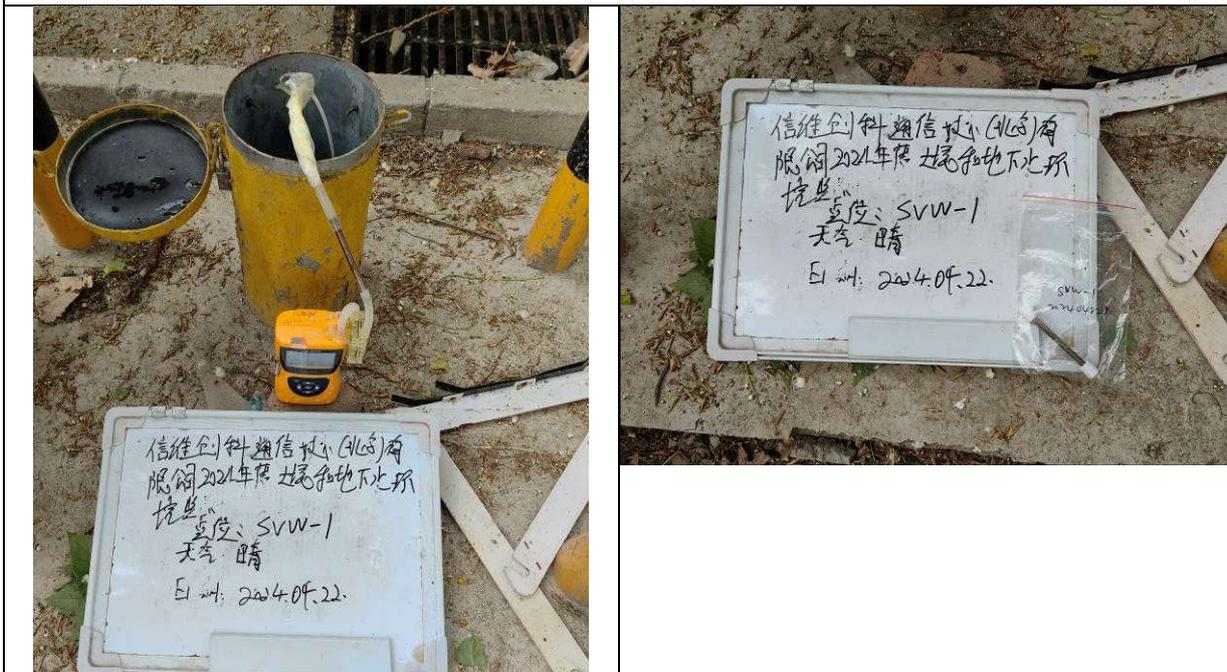 信维创科通信技术(北京)有
限公司2024年度土壤和地下水环
境监
点位: SVW-1
天气 晴
日期: 2024.04.22.
信维创科通信技术(北京)有
限公司2024年度土壤和地下水环
境监
点位: SVW-1
天气 晴
日期: 2024.04.22.
SVW-1